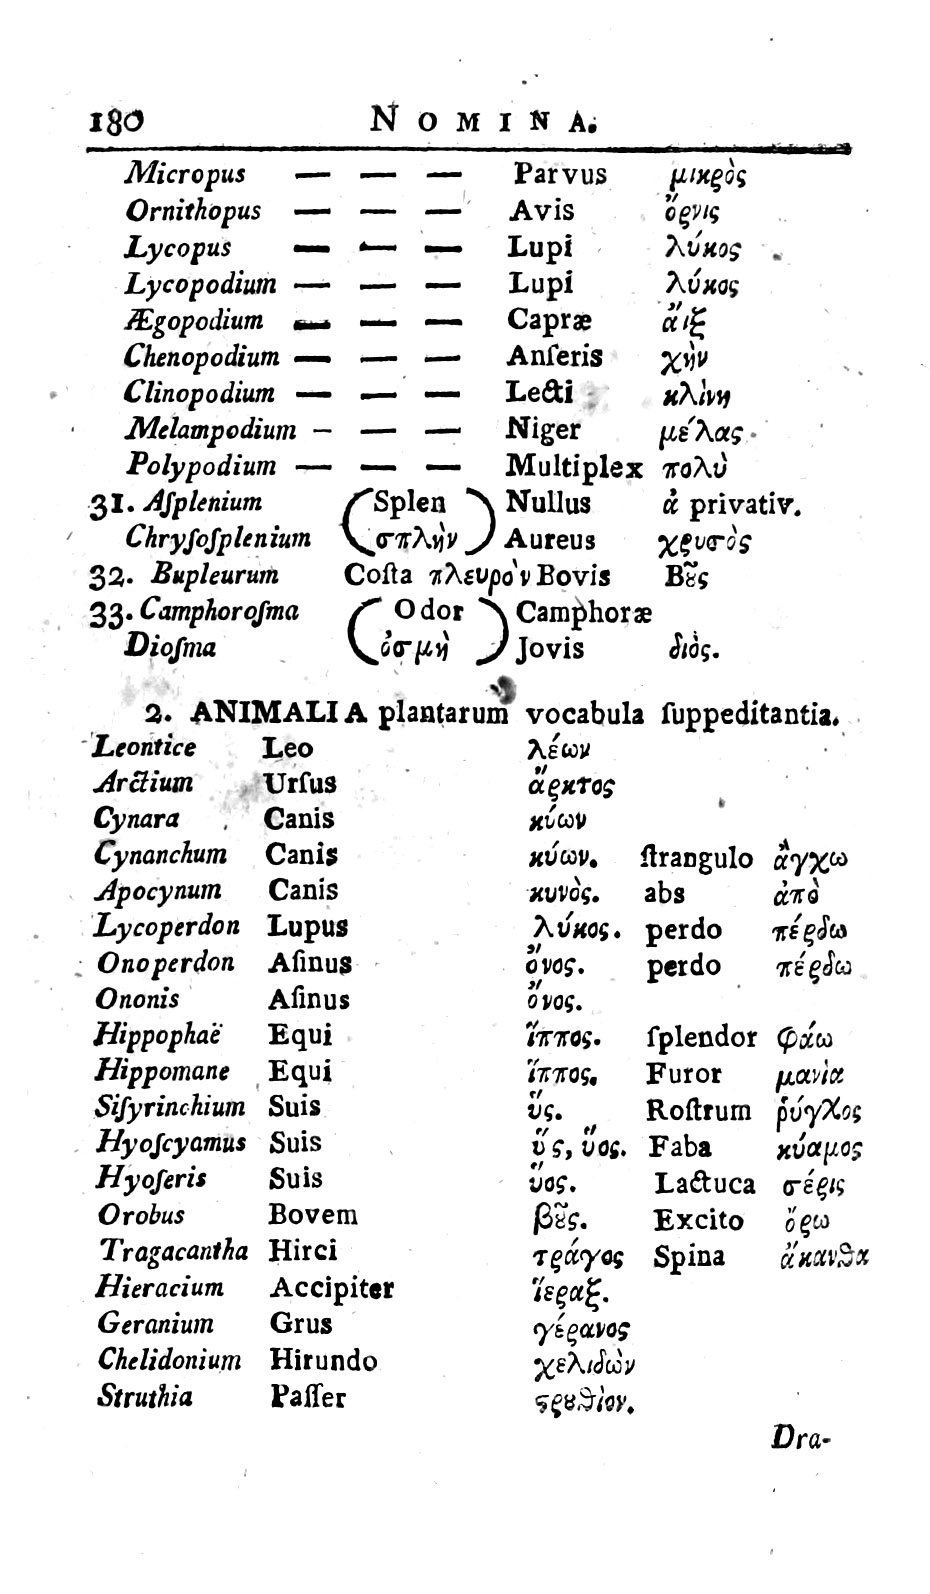 180 NOMINA.
Micropus — — — Parvus μικρὸς
Ornithopus — — — Avis ὄρνις
Lycopus — — — Lupi λύκος
Lycopodium — — — Lupi λύκος
Ægopodium — — — Capræ ἄιξ
Chenopodium — — — Anſeris χὴν
Clinopodium — — — Lecti κλὶνη
Melampodium — — — Niger μέλας
Polypodium — — — Multiplex πολὺ
31. Aſplenium (Splen) Nullus ἀ privativ.
Chryſoſplenium (σπλὴν) Aureus χρυσὸς
32. Bupleurum Coſta πλευρὸν Bovis Βȣ͂ς
33. Camphoroſma (Odor) Camphoræ
Dioſma (ὀσμὴ) Jovis διὸς.
2. ANIMALIA plantarum vocabula ſuppeditantia.
Leontice Leo λέων
Arctium Urſus ἄρκτος
Cynara Canis κύων
Cynanchum Canis κύων. ſtrangulo ἄγχω
Apocynum Canis κυνὸς. abs ἀπὸ
Lycoperdon Lupus λύκος. perdo πέρδω
Onoperdon Aſinus ὄνος. perdo πέρδω
Ononis Aſinus ὄνος.
Hippophaë Equi ἵππος. ſplendor φάω
Hippomane Equi ἵππος. Furor μανὶα
Siſyrinchium Suis ὕς. Roſtrum ῥύγχος
Hyoſcyamus Suis ὕς, ὕος. Faba κύαμος
Hyoſeris Suis ὕος. Lactuca σέρις
Orobus Bovem βȣ͂ς. Excito ὄρω
Tragacantha Hirci τράγος Spina ἄκανθα
Hieracium Accipiter ἵεραξ.
Geranium Grus γέρανος
Chelidonium Hirundo χελιδὼν
Struthia Paſſer ϛρȣθὶον.
Dra-